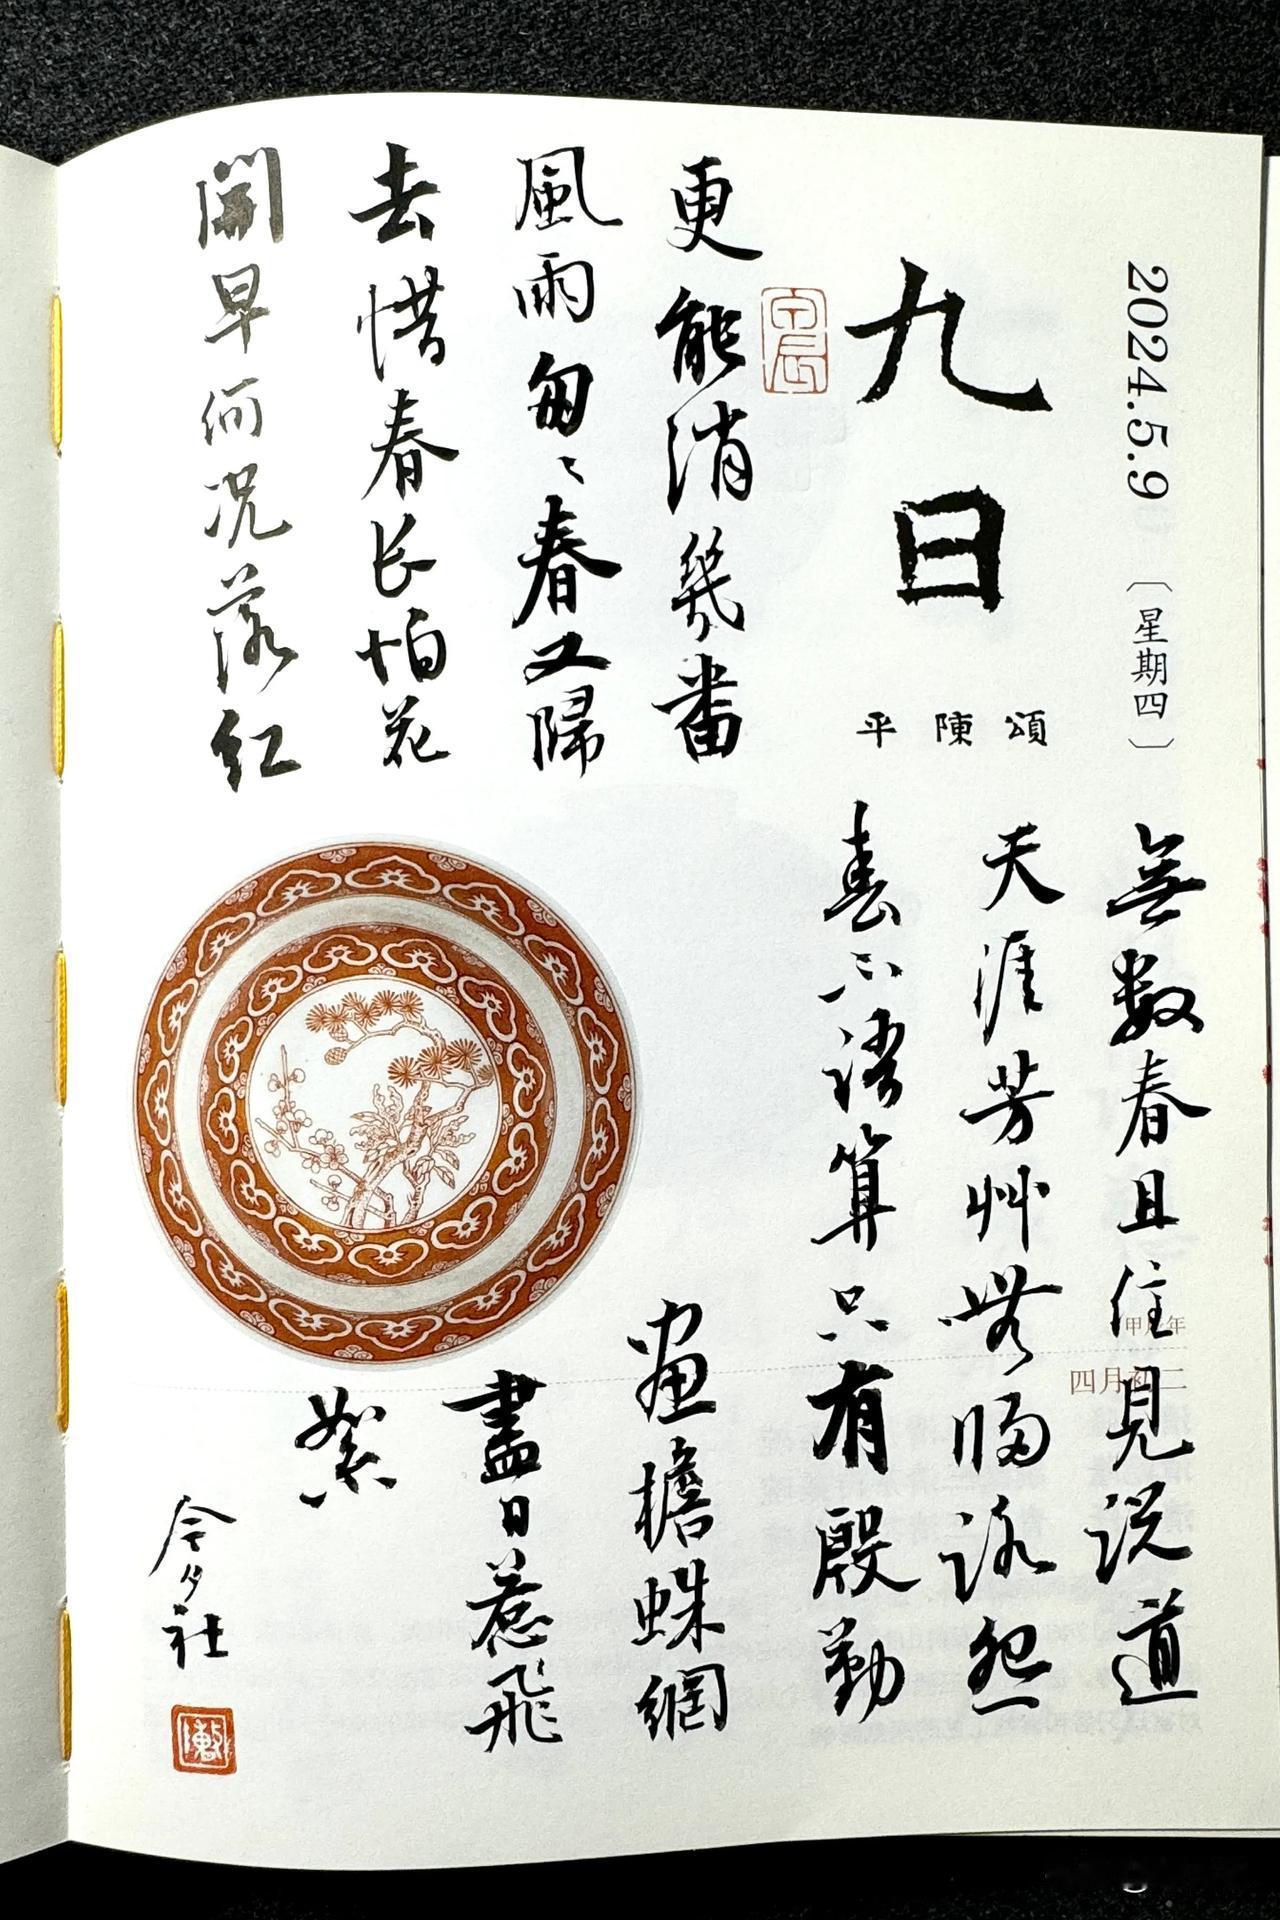 2024.5.9
〔星期四〕
九日
平陳頌
更能消幾番
風雨匆〻春又歸
去惜春長怕花
開早何況落紅
無數春且住見說道
天涯芳艸無歸路怨
春不語算只有殷勤
畫檐蛛網
盡日惹飛
絮
今夕社
四月初二